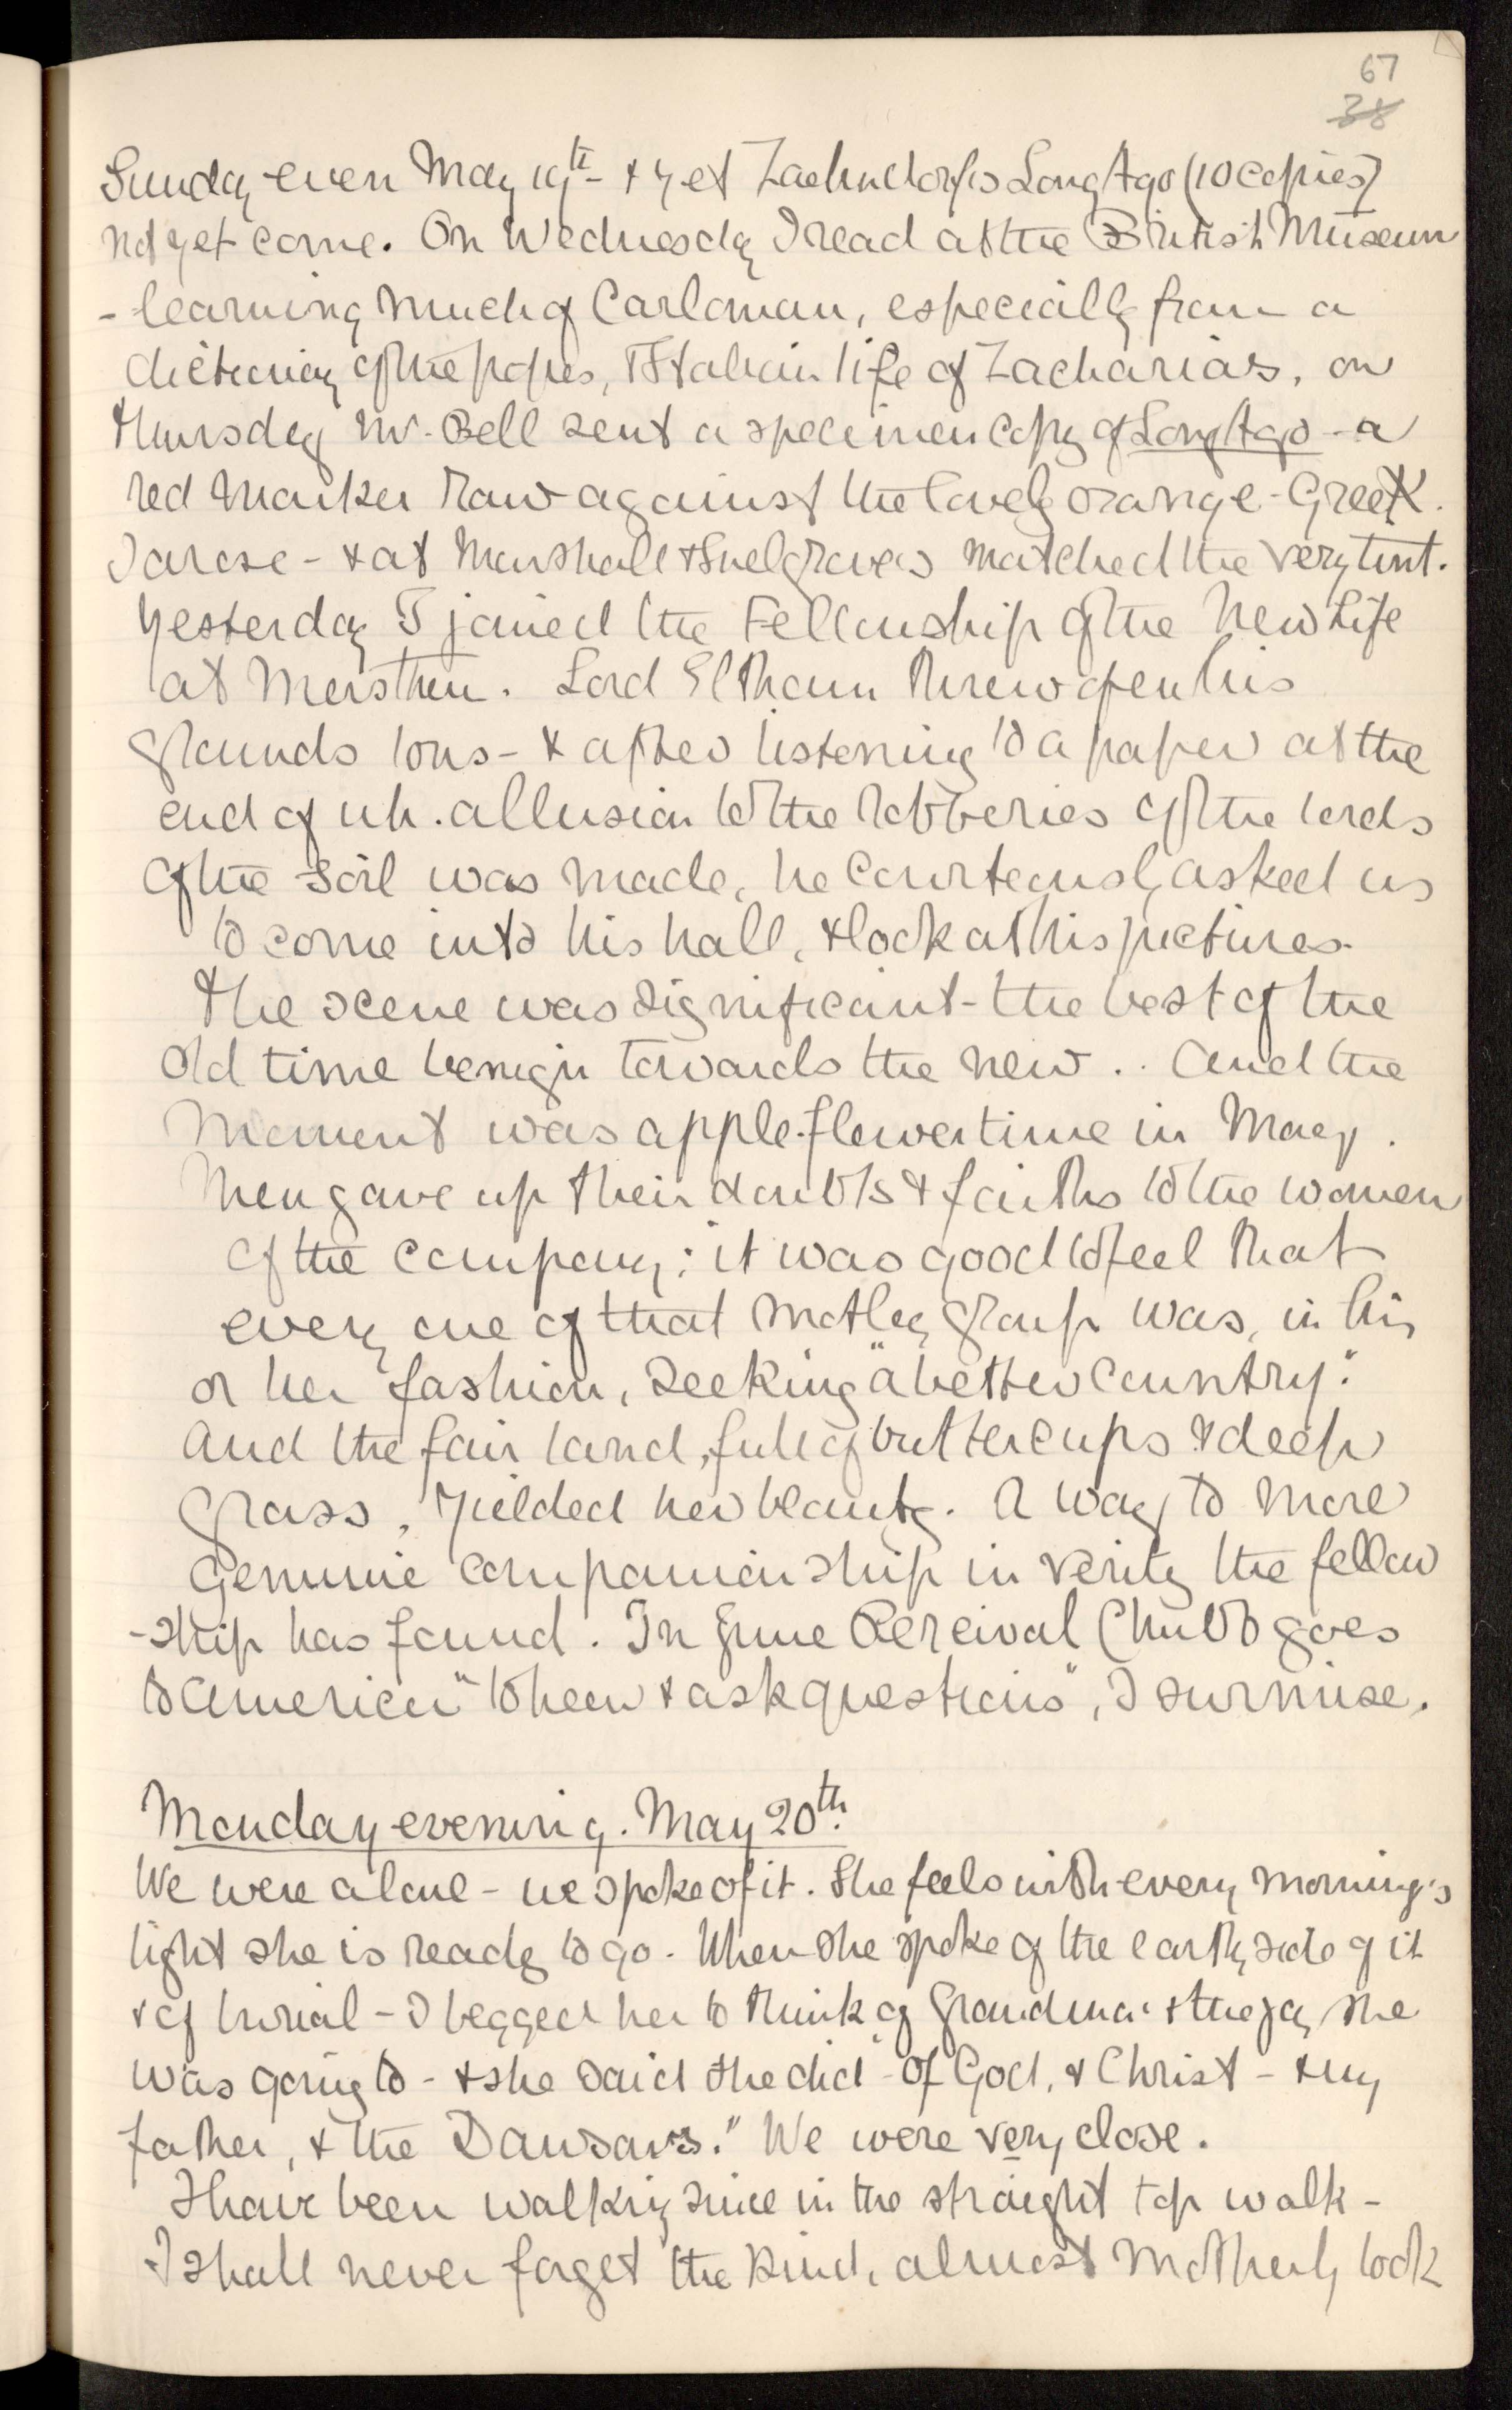 67
38
Sunday even May 19th - & yet Zaehnsdorf's Long Ago (10 copies)
not yet come. On Wednesday I read at the British Museum
- learning much of Carloman, especially from a
dictionary of the popes, & Italian life of Zacharias, on
Thursday Mr. Bell sent a specimen copy of Long Ago - a
red marker raw against the lovely orange - Greek.
I arose - & at Marshall & Snelgroves matched the very tint.
Yesterday I joined the Fellowship of the New Life
at Merstham. Lord Eltham threw open his
grounds to us - & after listening to a paper at the
end of wh. allusion to the robberies of the lords
of the soil was made, he courteously asked us
to come into his hall, & look at his pictures.
The scene was significant - the best of the
old time benign towards the new .. And the
moment was apple-flower time in May.
Men gave up their doubts & faiths to the women
of the company; it was good to feel that
every one of that motley group was, in his
or her fashion, seeking "a better country".
And the fair land, full of buttercups & deep
grass, yielded her beauty. A way to more
genuine companionship in verity the fellow
-ship has found. In June Percival Chubb goes
to America "to hear & ask questions", I surmise.
Monday evening. May 20th.
We were alone - we spoke of it. She feels with every morning's
light she is ready to go. When she spoke of the earthy side of it
& of burial - I begged her to think of Grandma & the joy she
was going to - & she said she did "of God, & Christ - & my
father, & the Dawsons." We were very close.
I have been walking since in the straight top walk -
I shall never forget the kind, almost motherly look